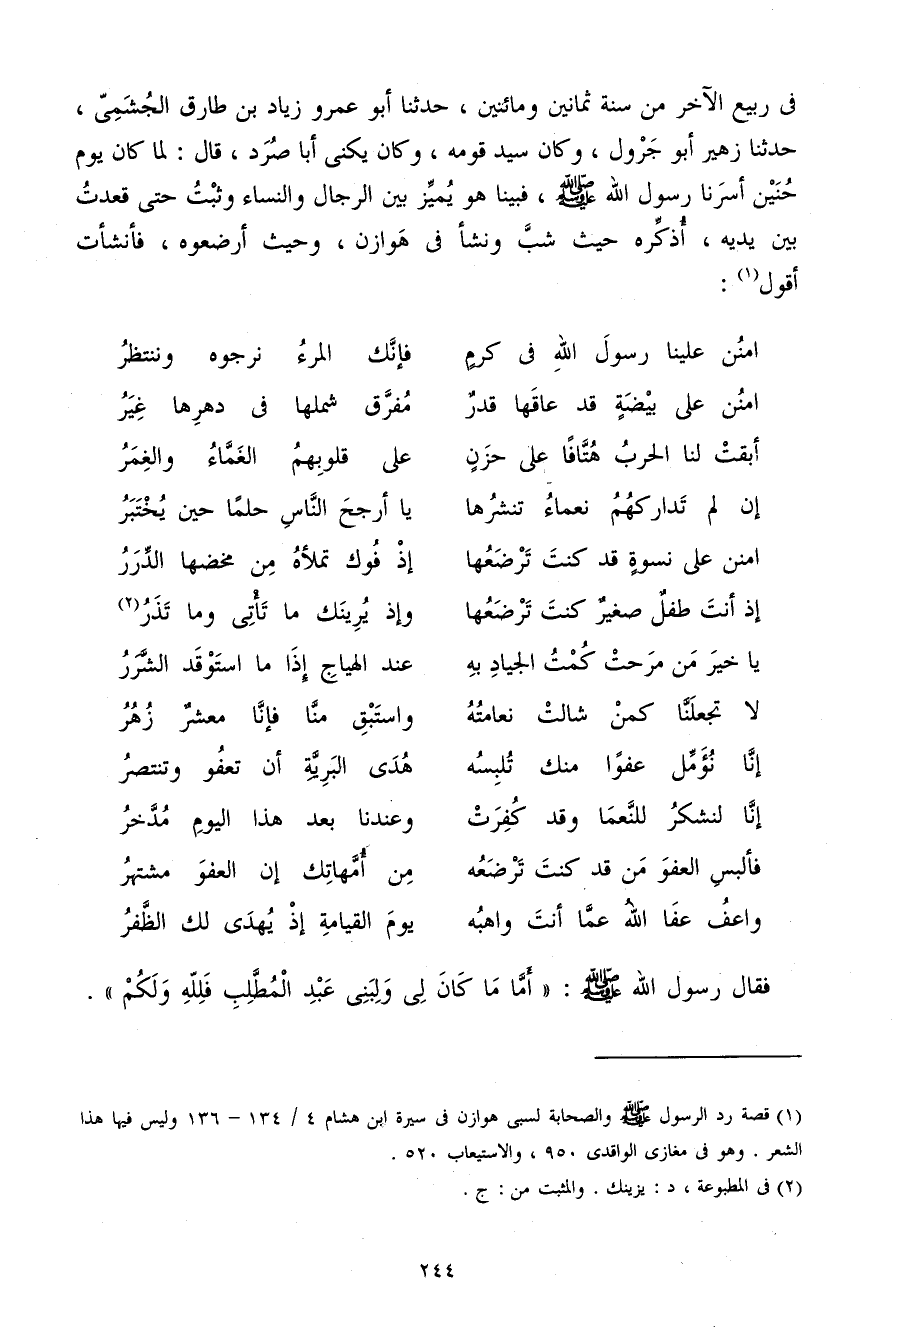 فى ربيع الآخر من سنة ثمانين ومائتين ، حدثنا أبو عمرو زياد بن طارق الجُشَمِىّ ،
حدثنا زهير أبو جَرْول ، وكان سيد قومه ، وكان يكنى أبا صُرَد ، قال : لما كان يوم
حُنَيْن أسرَنا رسول الله ﷺ ، فبينا هو يُميِّز بين الرجال والنساء وثبْتُ حتى قعدتُ
بين يديه ، أُذكِّره حيث شبَّ ونشأ فى هَوازن ، وحيث أرضعوه ، فأنشأت
أقول(١) :
امنُن علينا رسولَ اللهِ فى كرمٍ فإنَّك المرءُ نرجوه وننتظرُ
امنُن على بيْضَةٍ قد عاقَها قدرٌ مُفرَّق شملها فى دهرِها غِيَرُ
أبقتْ لنا الحربُ هُتَّافًا على حزَنٍ على قلوبِهمُ الغَمَّاءُ والغِمَرُ
إن لم تَداركهُمُ نعماءُ تنشرُها يا أرجحَ النَّاسِ حلمًا حين يُخْتَبَرُ
امنن على نسوةٍ قد كنتَ تَرْضَعُها إذْ فُوك تملأهُ مِن مخضها الدِّرَرُ
إذ أنتَ طفلٌ صغيرٌ كنتَ تَرْضَعُها وإذ يُرِينَك ما تَأْتِى وما تَذَرُ(٢)
يا خيرَ مَن مرَحتْ كُمْتُ الجيادِ بهِ عند الهياجِ إذَا ما استَوْقَد الشَّرَرُ
لا تجعلَنَّا كمنْ شالتْ نعامتُهُ واستَبْقِ منَّا فإنَّا معشرٌ زُهُرُ
إنَّا نُؤَمِّل عفوًا منك تُلبِسُه هُدَى البَرِيَّةِ أن تعفُو وتنتصرُ
إنَّا لنشكرُ للنَّعمَا وقد كُفِرَتْ وعندنا بعد هذا اليومِ مُدَّخرُ
فألبسِ العفوَ مَن قد كنتَ تَرْضَعُه مِن أُمَّهاتِك إن العفوَ مشتهرُ
واعفُ عفَا اللهُ عمَّا أنتَ واهبُه يومَ القيامةِ إذْ يُهدَى لك الظَّفرُ
فقال رسول الله ﷺ : « أَمَّا مَا كَانَ لِى وَلِبَنِى عَبْدِ الْمُطَّلِبِ فَلِلّٰهِ وَلَكُمْ » .
(١) قصة رد الرسول ﷺ والصحابة لسبى هوازن فى سيرة ابن هشام ٤ / ١٣٤ – ١٣٦ وليس فيها هذا
الشعر . وهو فى مغازى الواقدى ٩٥٠ ، والاستيعاب ٥٢٠ .
(٢) فى المطبوعة ، د : يزينك . والمثبت من : ج .
٢٤٤